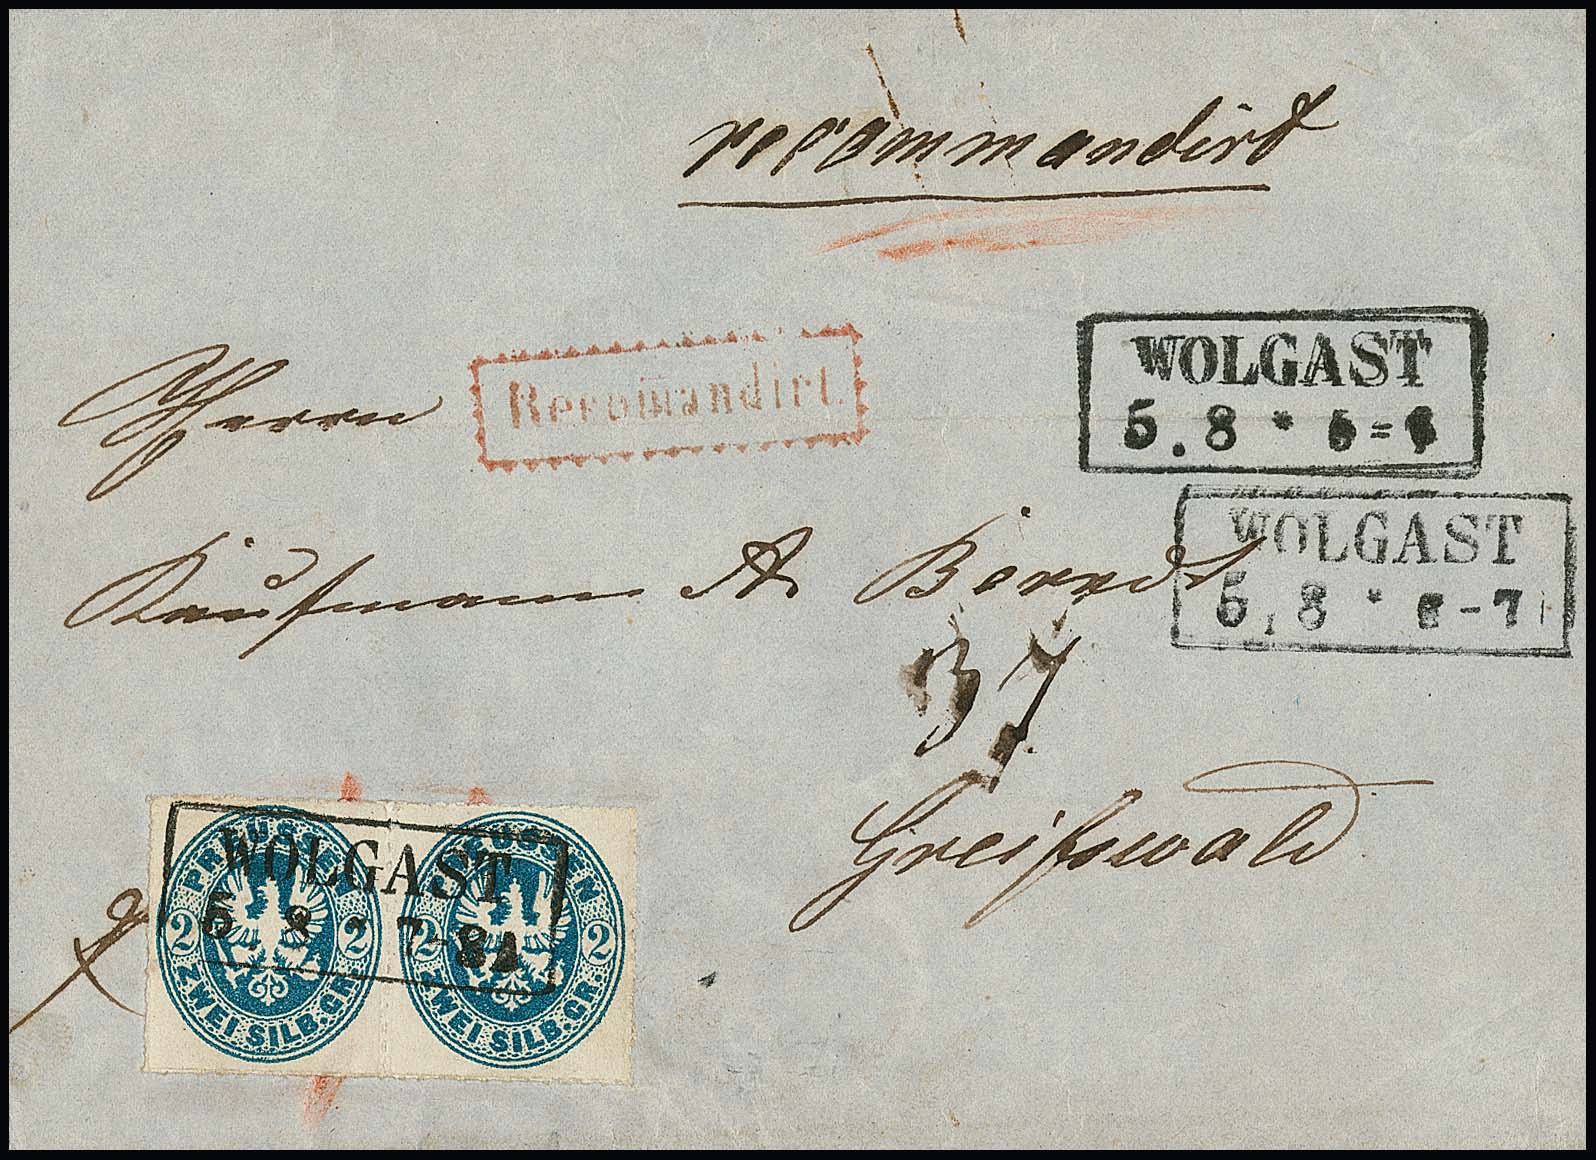 recommandirt
WOLGAST
5.8 * 6-
Recomandirt.
Herrn
WOLGAST
5.8 * 6-7
Kaufmann A. Berndt
37
Greifswald
PREUSSEN
2 2
ZWEI SILB.GR.
PREUSSEN
2 2
ZWEI SILB.GR.
WOLGAST
5.8 * 7-8A